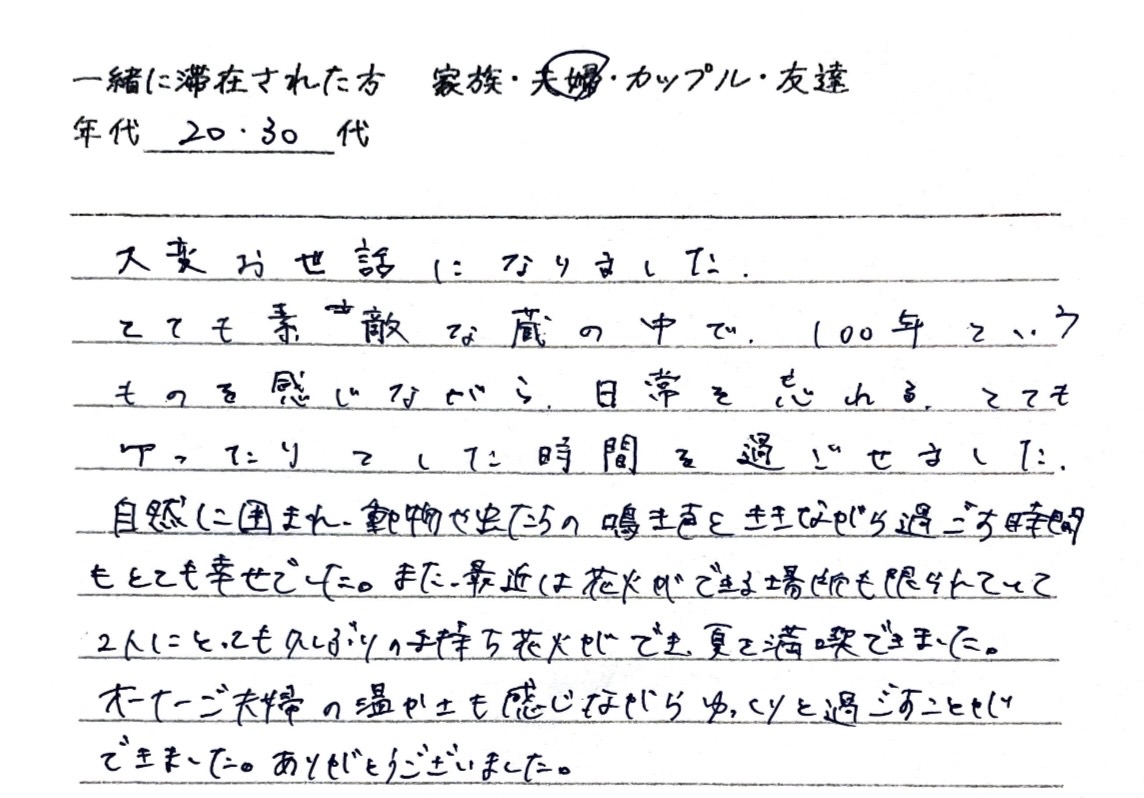 一緒に滞在された方 家族・夫婦・カップル・友達
年代 20・30 代
大変お世話になりました.
とても素敵な蔵の中で、100年という
ものを感じながら、日常を忘れる、とても
ゆったりとした時間を過ごせました.
自然に囲まれ、動物や虫たちの鳴き声をききながら過ごす時間
もとても幸せでした。また、最近は花火ができる場所も限られていて
2人にとっても久しぶりの手持ち花火ができ、夏を満喫できました。
オーナーご夫婦の温かさも感じながらゆっくりと過ごすことが
できました。ありがとうございました。